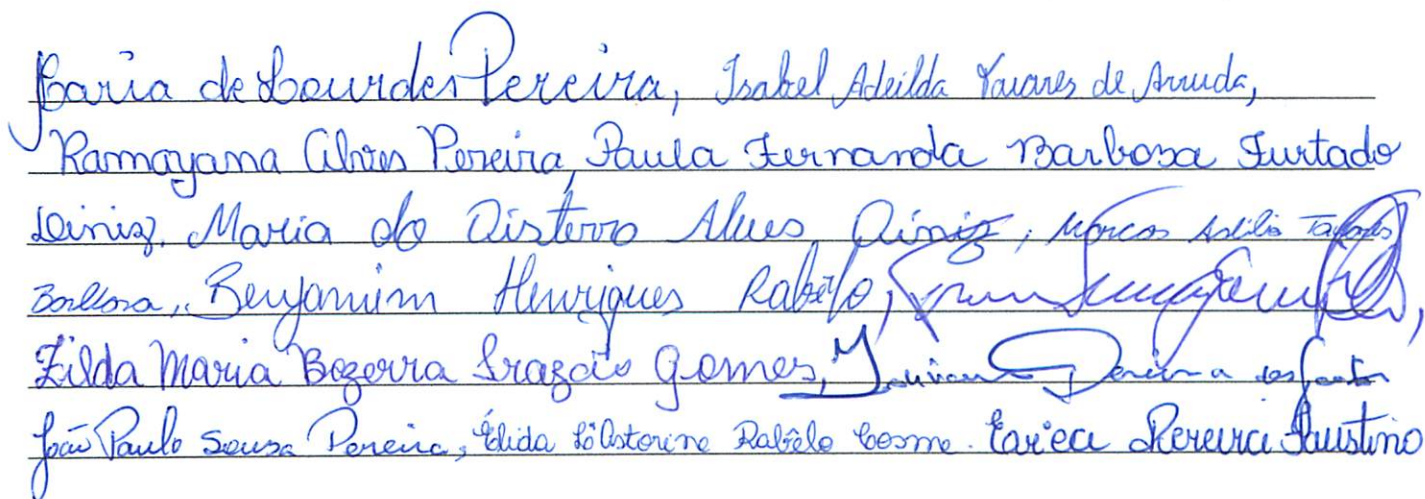 Maria de Lourdes Pereira, Isabel Adeilda Tavares de Arruda,
Ramayana Alves Pereira, Paula Fernanda Barbosa Furtado
Diniz, Maria do Disterro Alves Diniz, Marcos Tavares
Barbosa, Benjamim Henriques Rabêlo,
Zilda Maria Bezerra Frazão Gomes, Pereira dos Santos
João Paulo Sousa Pereira, Élida Rabêlo Cosme. Pereira Faustino